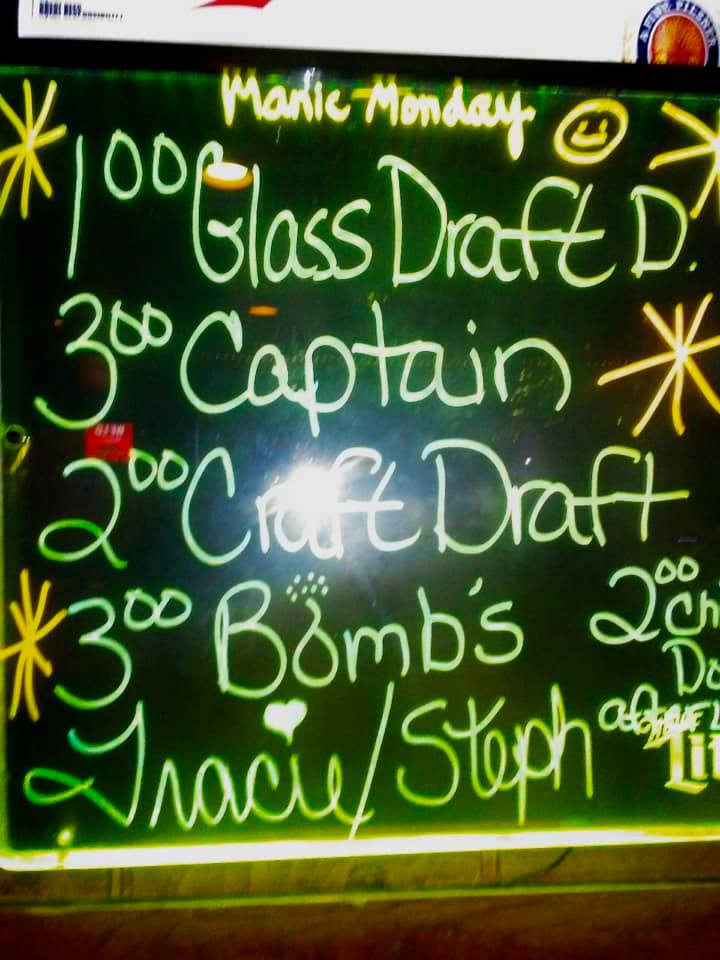 A FINE PILSNER
Manic Monday
1 00 Glass Draft D.
3 00 Captain
2 00 Craft Draft
3 00 Bomb's
2 00 Ch
Do
Tracie/Steph
Lit